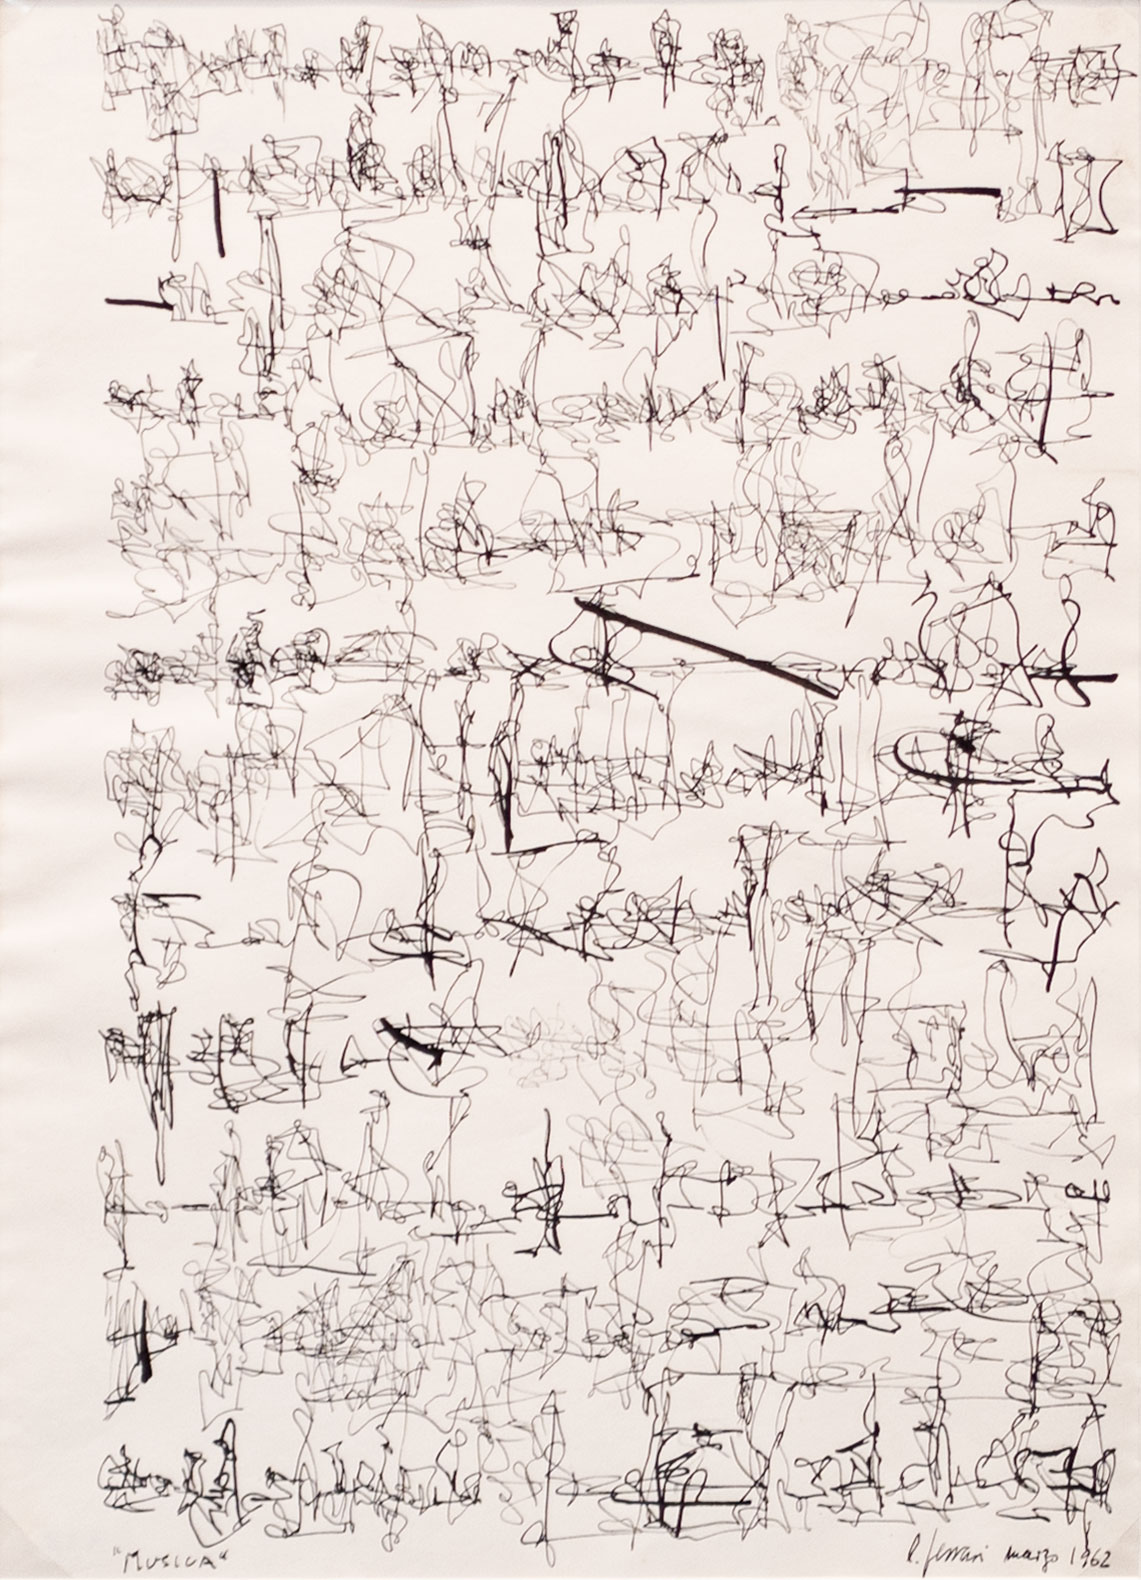 "MUSICA"
L. Ferrari marzo 1962